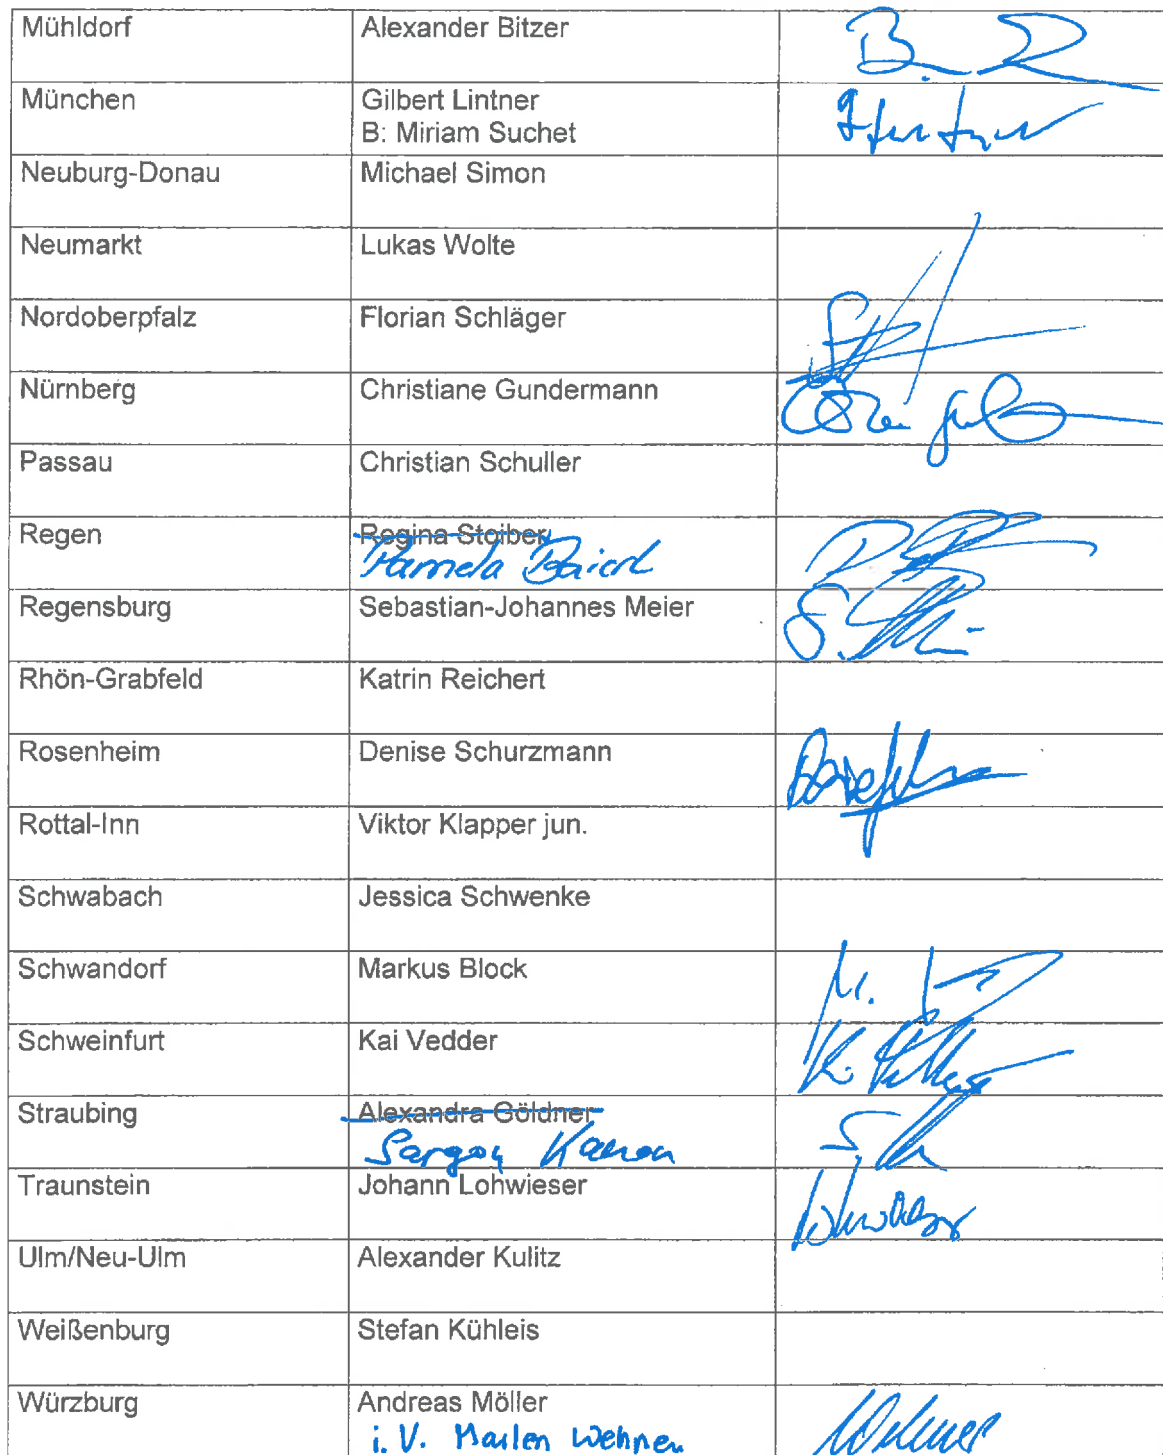 Mühldorf Alexander Bitzer
München Gilbert Lintner
B: Miriam Suchet
Neuburg-Donau Michael Simon
Neumarkt Lukas Wolte
Nordoberpfalz Florian Schläger
Nürnberg Christiane Gundermann
Passau Christian Schuller
Regen Regina Stoiber
Pamela
Regensburg Sebastian-Johannes Meier
Rhön-Grabfeld Katrin Reichert
Rosenheim Denise Schurzmann
Rottal-Inn Viktor Klapper jun.
Schwabach Jessica Schwenke
Schwandorf Markus Block
Schweinfurt Kai Vedder
Straubing Alexandra Göldner
Sargon
Traunstein Johann Lohwieser
Ulm/Neu-Ulm Alexander Kulitz
Weißenburg Stefan Kühleis
Würzburg Andreas Möller
i. V. Marlen Wehner